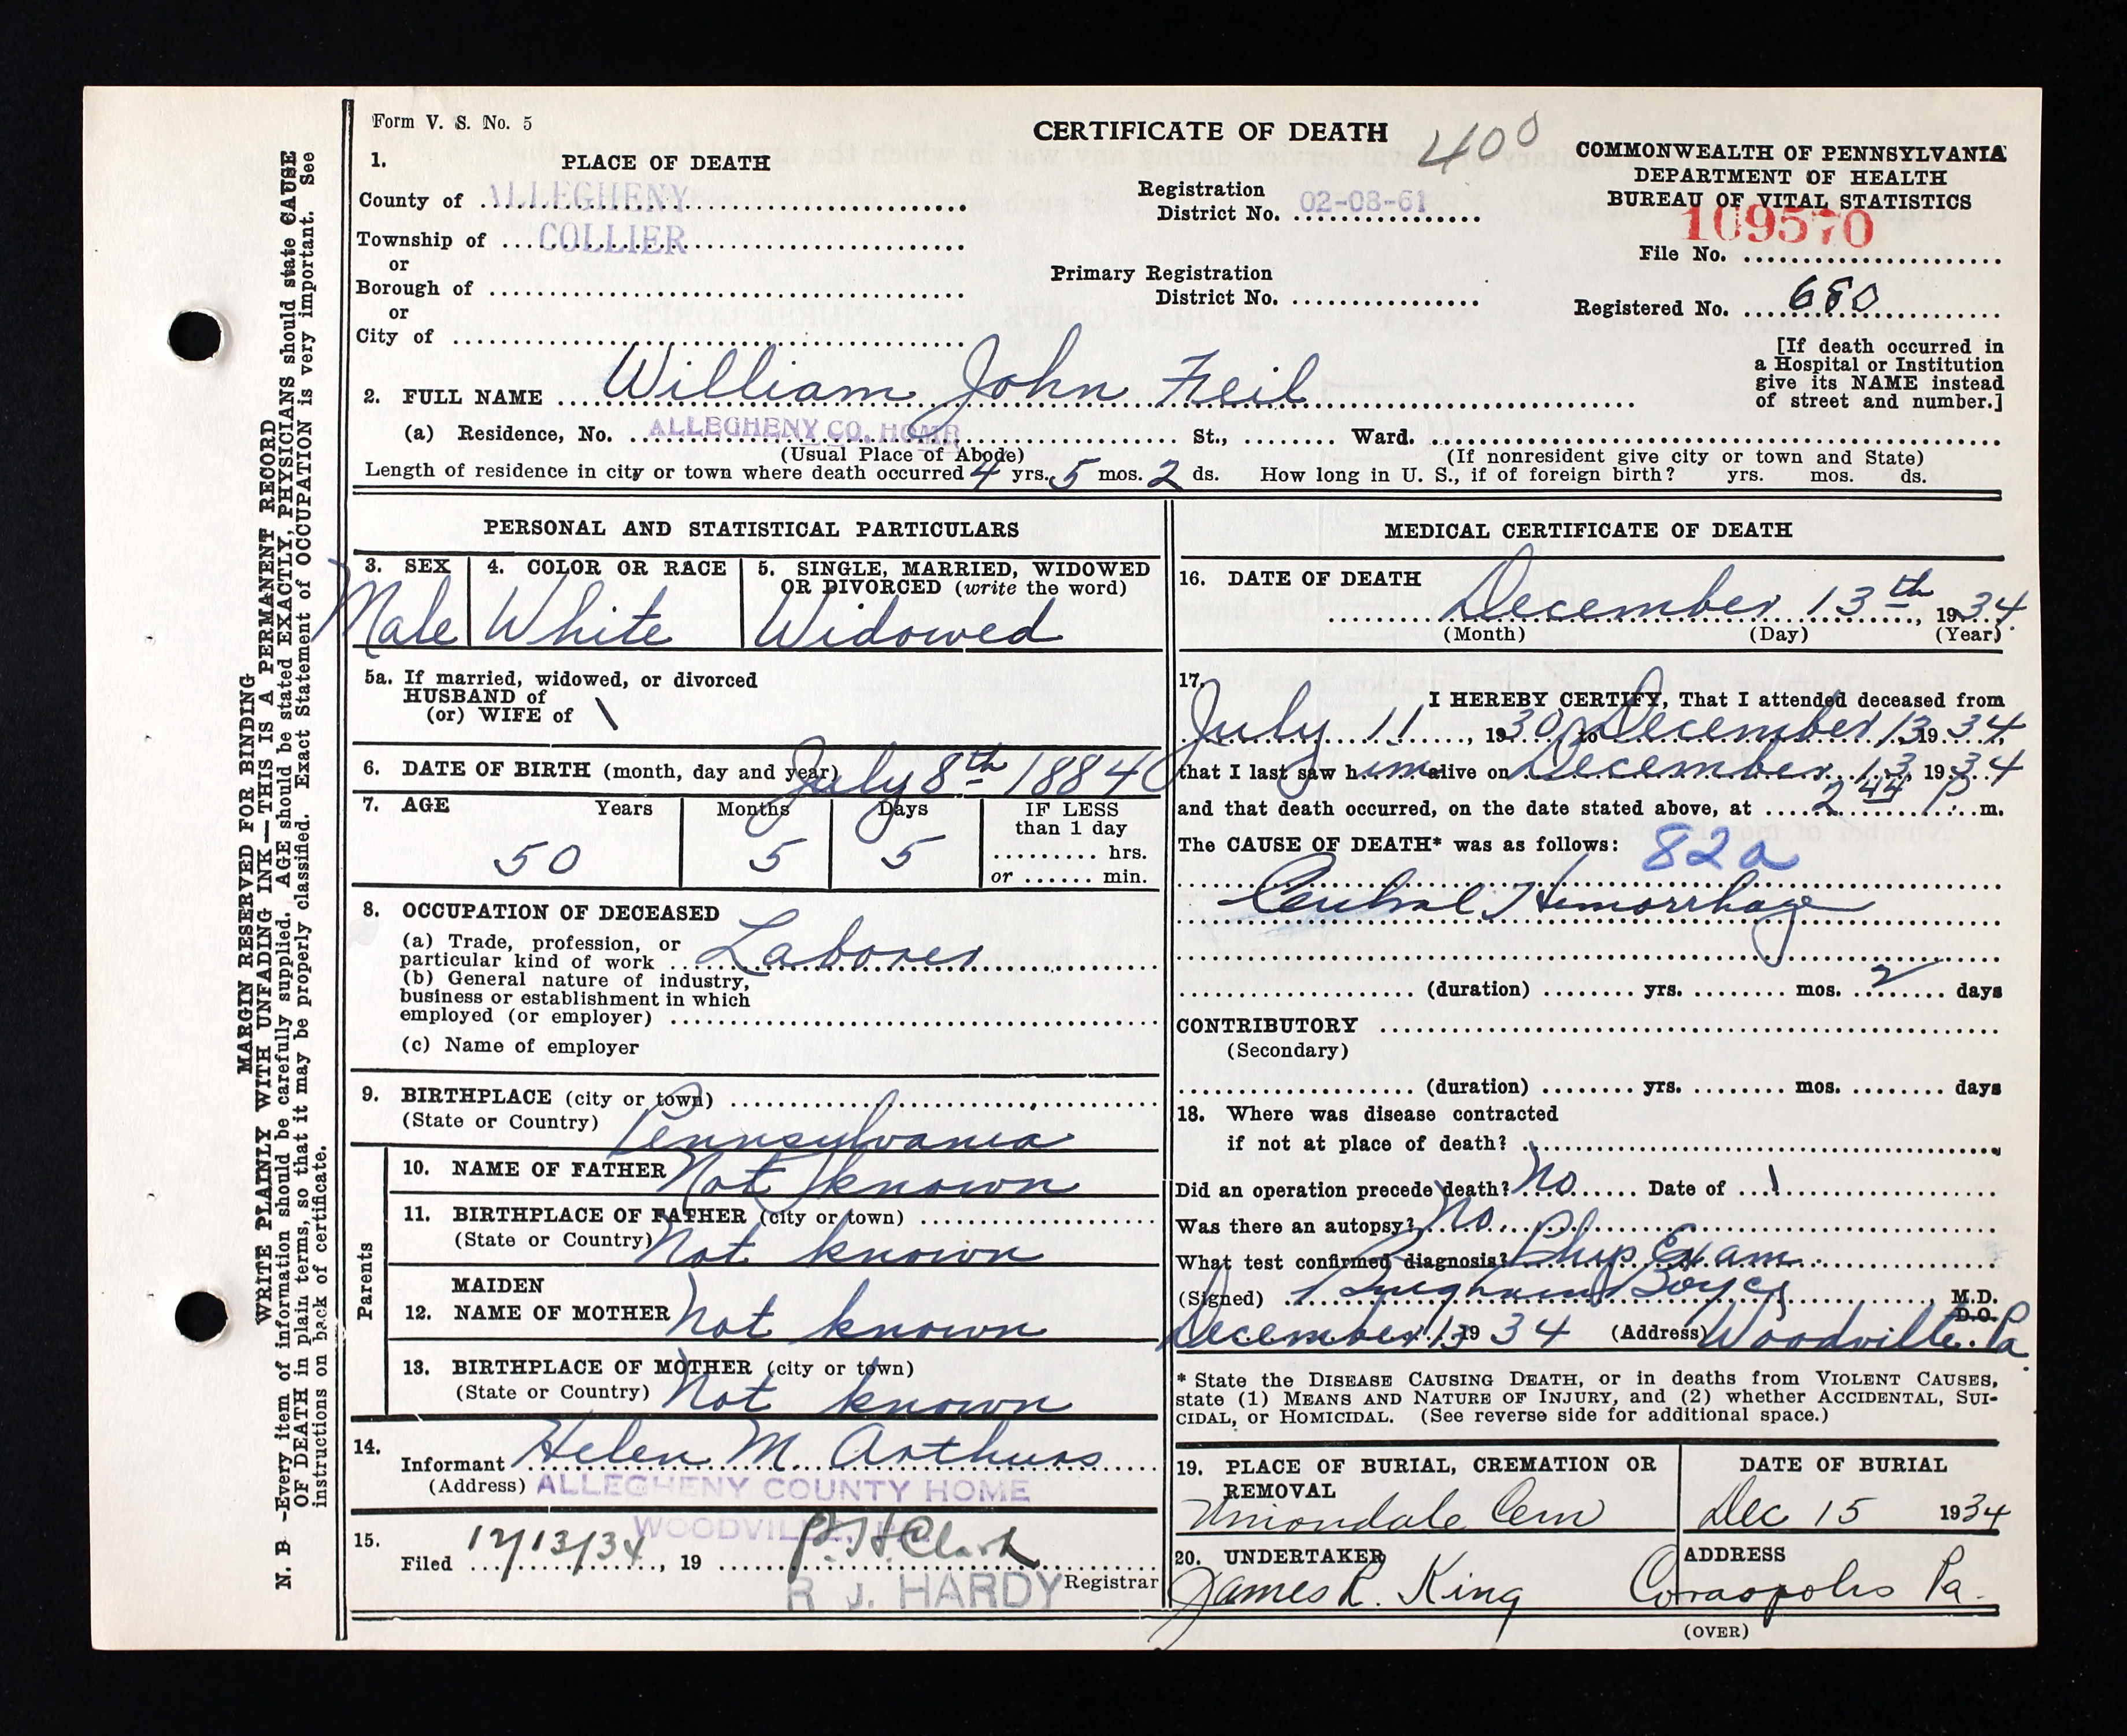 Form V. S. No. 5
CERTIFICATE OF DEATH
400
COMMONWEALTH OF PENNSYLVANIA
DEPARTMENT OF HEALTH
BUREAU OF VITAL STATISTICS
109570
File No.
Registered No. 680
1. PLACE OF DEATH
County of ALLEGHENY
Township of COLLIER
or
Borough of
or
City of
Registration
District No. 02-08-61
Primary Registration
District No.
[If death occurred in
a Hospital or Institution
give its NAME instead
of street and number.]
2. FULL NAME William John Feil
(a) Residence, No. ALLEGHENY CO. HOME St., Ward.
(Usual Place of Abode) (If nonresident give city or town and State)
Length of residence in city or town where death occurred 4 yrs. 5 mos. 2 ds. How long in U. S., if of foreign birth? yrs. mos. ds.
PERSONAL AND STATISTICAL PARTICULARS
3. SEX
Male
4. COLOR OR RACE
White
5. SINGLE, MARRIED, WIDOWED
OR DIVORCED (write the word)
Widowed
5a. If married, widowed, or divorced
HUSBAND of
(or) WIFE of \
6. DATE OF BIRTH (month, day and year) July 8th 1884
7. AGE Years Months Days IF LESS
than 1 day
hrs.
or min.
50 5 5
8. OCCUPATION OF DECEASED
(a) Trade, profession, or
particular kind of work Laborer
(b) General nature of industry,
business or establishment in which
employed (or employer)
(c) Name of employer
9. BIRTHPLACE (city or town)
(State or Country) Pennsylvania
Parents
10. NAME OF FATHER Not known
11. BIRTHPLACE OF FATHER (city or town)
(State or Country) Not known
MAIDEN
12. NAME OF MOTHER Not known
13. BIRTHPLACE OF MOTHER (city or town)
(State or Country) Not known
14.
Informant Helen M. Arthurs
(Address) ALLEGHENY COUNTY HOME
WOODVILLE, PA.
15.
Filed 12/13/34, 19 P. H. Clark
R J. HARDY Registrar
MEDICAL CERTIFICATE OF DEATH
16. DATE OF DEATH
December 13th, 1934
(Month) (Day) (Year)
17.
I HEREBY CERTIFY, That I attended deceased from
July 11, 1930, to December 13 1934
that I last saw him alive on December 13, 1934
and that death occurred, on the date stated above, at 2 44 P. m.
The CAUSE OF DEATH* was as follows: 82a
Cerebral Hemorrhage
(duration) yrs. mos. 2 days
CONTRIBUTORY
(Secondary)
(duration) yrs. mos. days
18. Where was disease contracted
if not at place of death?
Did an operation precede death? No Date of \
Was there an autopsy? No
What test confirmed diagnosis? Phys Exam
(Signed) Boyce M.D.
D.O.
December 13 19 34 (Address) Woodville. Pa.
* State the DISEASE CAUSING DEATH, or in deaths from VIOLENT CAUSES,
state (1) MEANS AND NATURE OF INJURY, and (2) whether ACCIDENTAL, SUI-
CIDAL, or HOMICIDAL. (See reverse side for additional space.)
19. PLACE OF BURIAL, CREMATION OR
REMOVAL
Uniondale Cem
DATE OF BURIAL
Dec 15 1934
20. UNDERTAKER
James R. King
ADDRESS
Coraopolis Pa.
(OVER)
MARGIN RESERVED FOR BINDING
WRITE PLAINLY WITH UNFADING INK—THIS IS A PERMANENT RECORD
N. B -Every item of information should be carefully supplied. AGE should be stated EXACTLY, PHYSICIANS should state CAUSE
OF DEATH in plain terms, so that it may be properly classified. Exact Statement of OCCUPATION is very important. See
instructions on back of certificate.